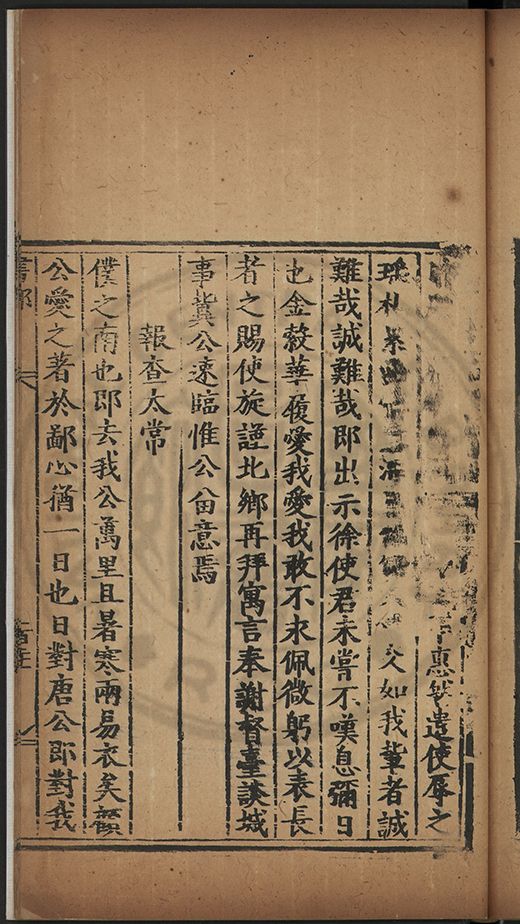 惠然遣使辱之
如我輩者誠
難哉誠難哉即出示徐使君未嘗不嘆息彌日
也金縠華履愛我愛我敢不末佩微躬以表長
者之賜使旋謹北鄉再拜寓言奉謝督臺談城
事冀公速臨惟公畱意焉
報查太常
僕之南也即去我公萬里且暑寒兩易衣矣
公愛之著於鄙心猶一日也日對唐公即對我